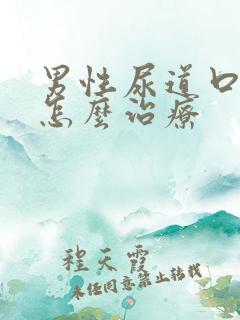 男性尿道口
怎麼治療
程天霞
未经同意禁止转载